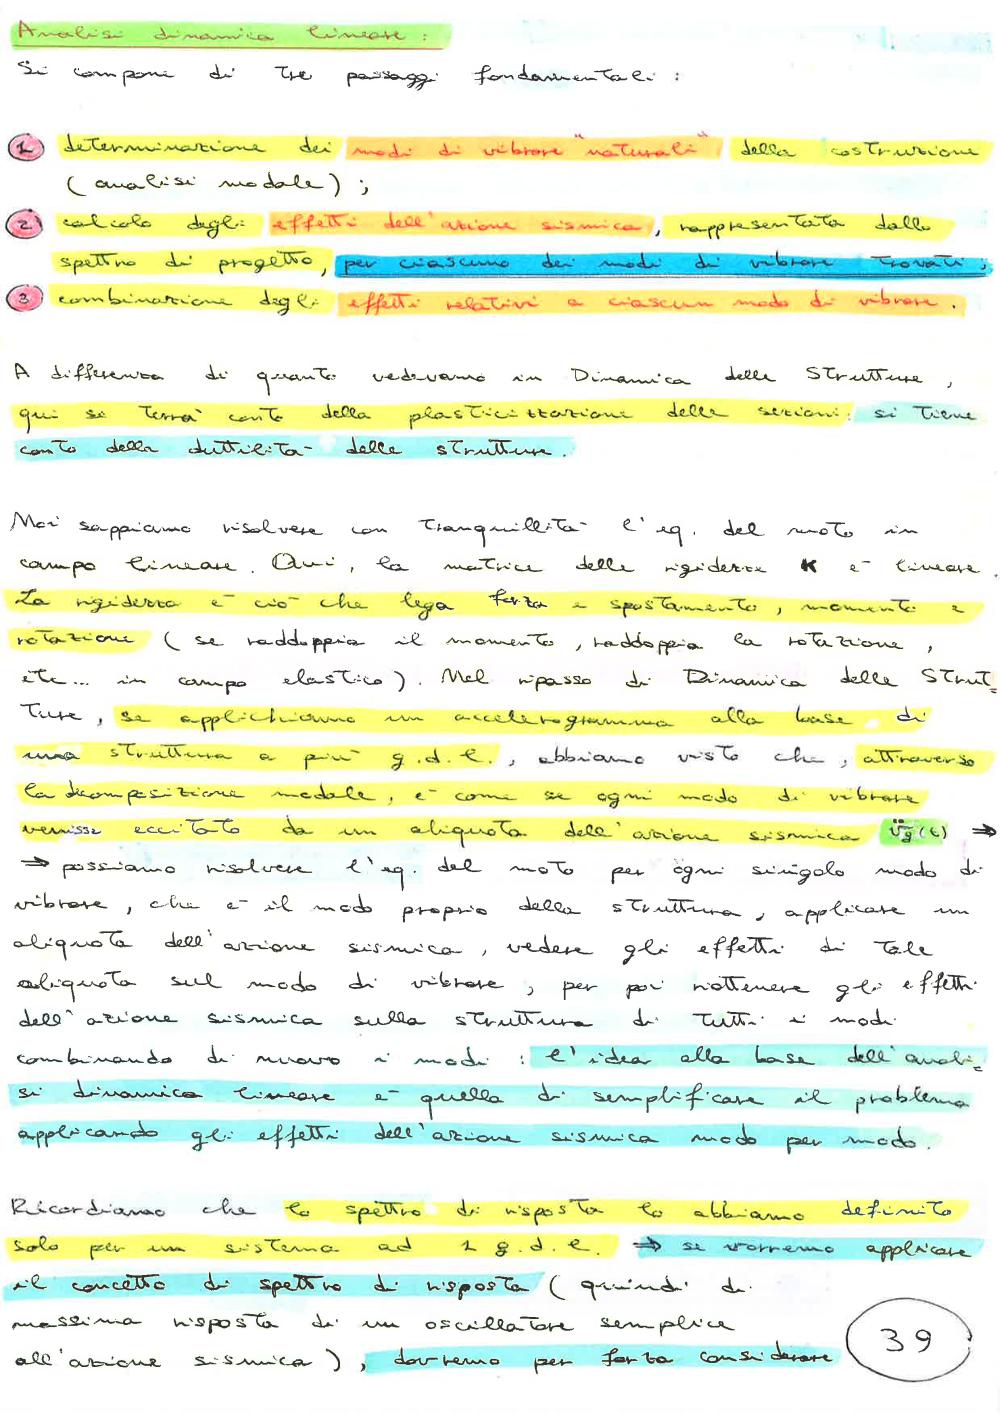 Analisi dinamica lineare :
Si compone di tre passaggi fondamentali :
1 determinazione dei modi di vibrare "naturali" della costruzione
(analisi modale) ;
2 calcolo degli effetti dell'azione sismica, rappresentata dallo
spettro di progetto, per ciascuno dei modi di vibrare trovati ;
3 combinazione degli effetti relativi a ciascun modo di vibrare.
A differenza di quanto vedevamo in Dinamica delle Strutture,
qui si terrà conto della plasticizzazione delle sezioni: si tiene
conto della duttilità delle strutture.
Noi sappiamo risolvere con tranquillità l'eq. del moto in
campo lineare. Qui, la matrice delle rigidezze K è lineare.
La rigidezza è ciò che lega forza e spostamento, momento e
rotazione (se raddoppia il momento, raddoppia la rotazione,
etc... in campo elastico). Nel ripasso di Dinamica delle Strut=
ture, se applichiamo un accelerogramma alla base di
una struttura a più g.d.l., abbiamo visto che, attraverso
la decomposizione modale, è come se ogni modo di vibrare
venisse eccitato da un aliquota dell'azione sismica v̈g(t) ⇒
⇒ possiamo risolvere l'eq. del moto per ogni singolo modo di
vibrare, che è il modo proprio della struttura, applicare un
aliquota dell'azione sismica, vedere gli effetti di tale
aliquota sul modo di vibrare, per poi riottenere gli effetti
dell'azione sismica sulla struttura di tutti i modi
combinando di nuovo i modi : l'idea alla base dell'anali=
si dinamica lineare è quella di semplificare il problema
applicando gli effetti dell'azione sismica modo per modo.
Ricordiamo che lo spettro di risposta lo abbiamo definito
solo per un sistema ad 1 g.d.l. ⇒ se vorremo applicare
il concetto di spettro di risposta (quindi di
massima risposta di un oscillatore semplice
all'azione sismica), dovremo per forza considerare
39